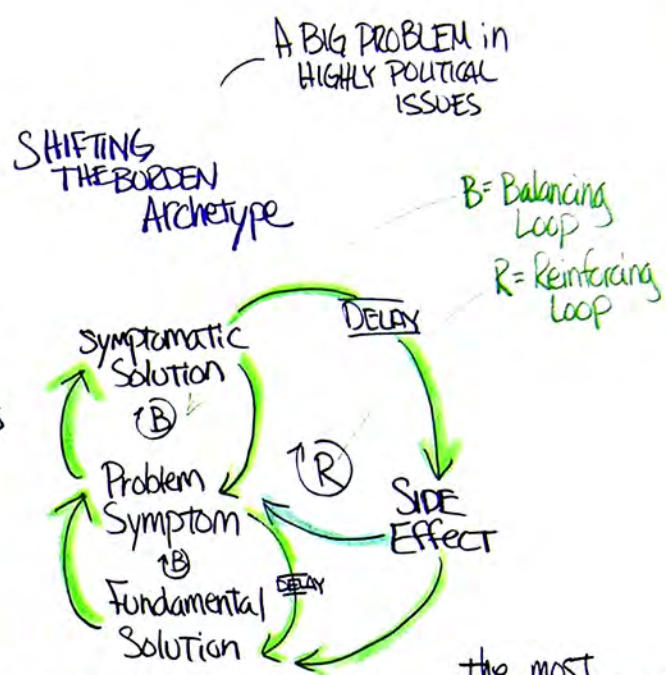 A BIG PROBLEM in
HIGHLY POLITICAL
ISSUES
SHIFTING
THE BURDEN
Archetype
B= Balancing
Loop
R= Reinforcing
Loop
DELAY
Symptomatic
Solution
B
R
Problem
Symptom
SIDE
Effect
B
DELAY
Fundamental
Solution
the most